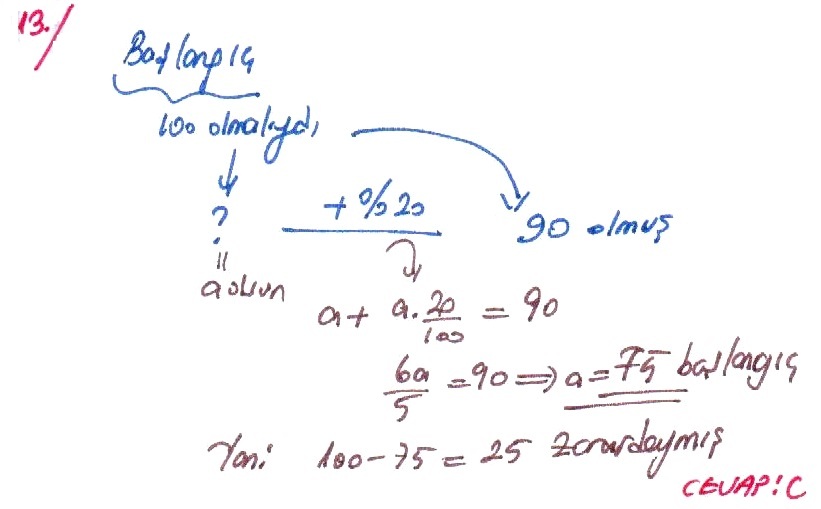 13./
Başlangıç
100 olmalıydı
+ %20
?
90 olmuş
=
a olsun
a + a.20/100 = 90
6a/5 = 90 ⇒ a = 75 başlangıç
Yani 100 - 75 = 25 zarardaymış
CEVAP: C